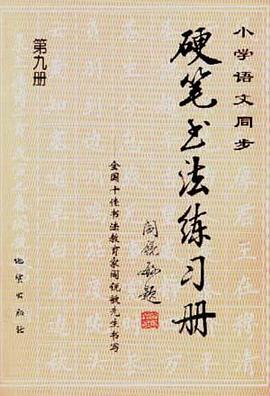 小学语文同步
硬笔书法练习册
第九册
全国十佳书法教育家阎锐敏先生书写
阎锐敏题
地质出版社